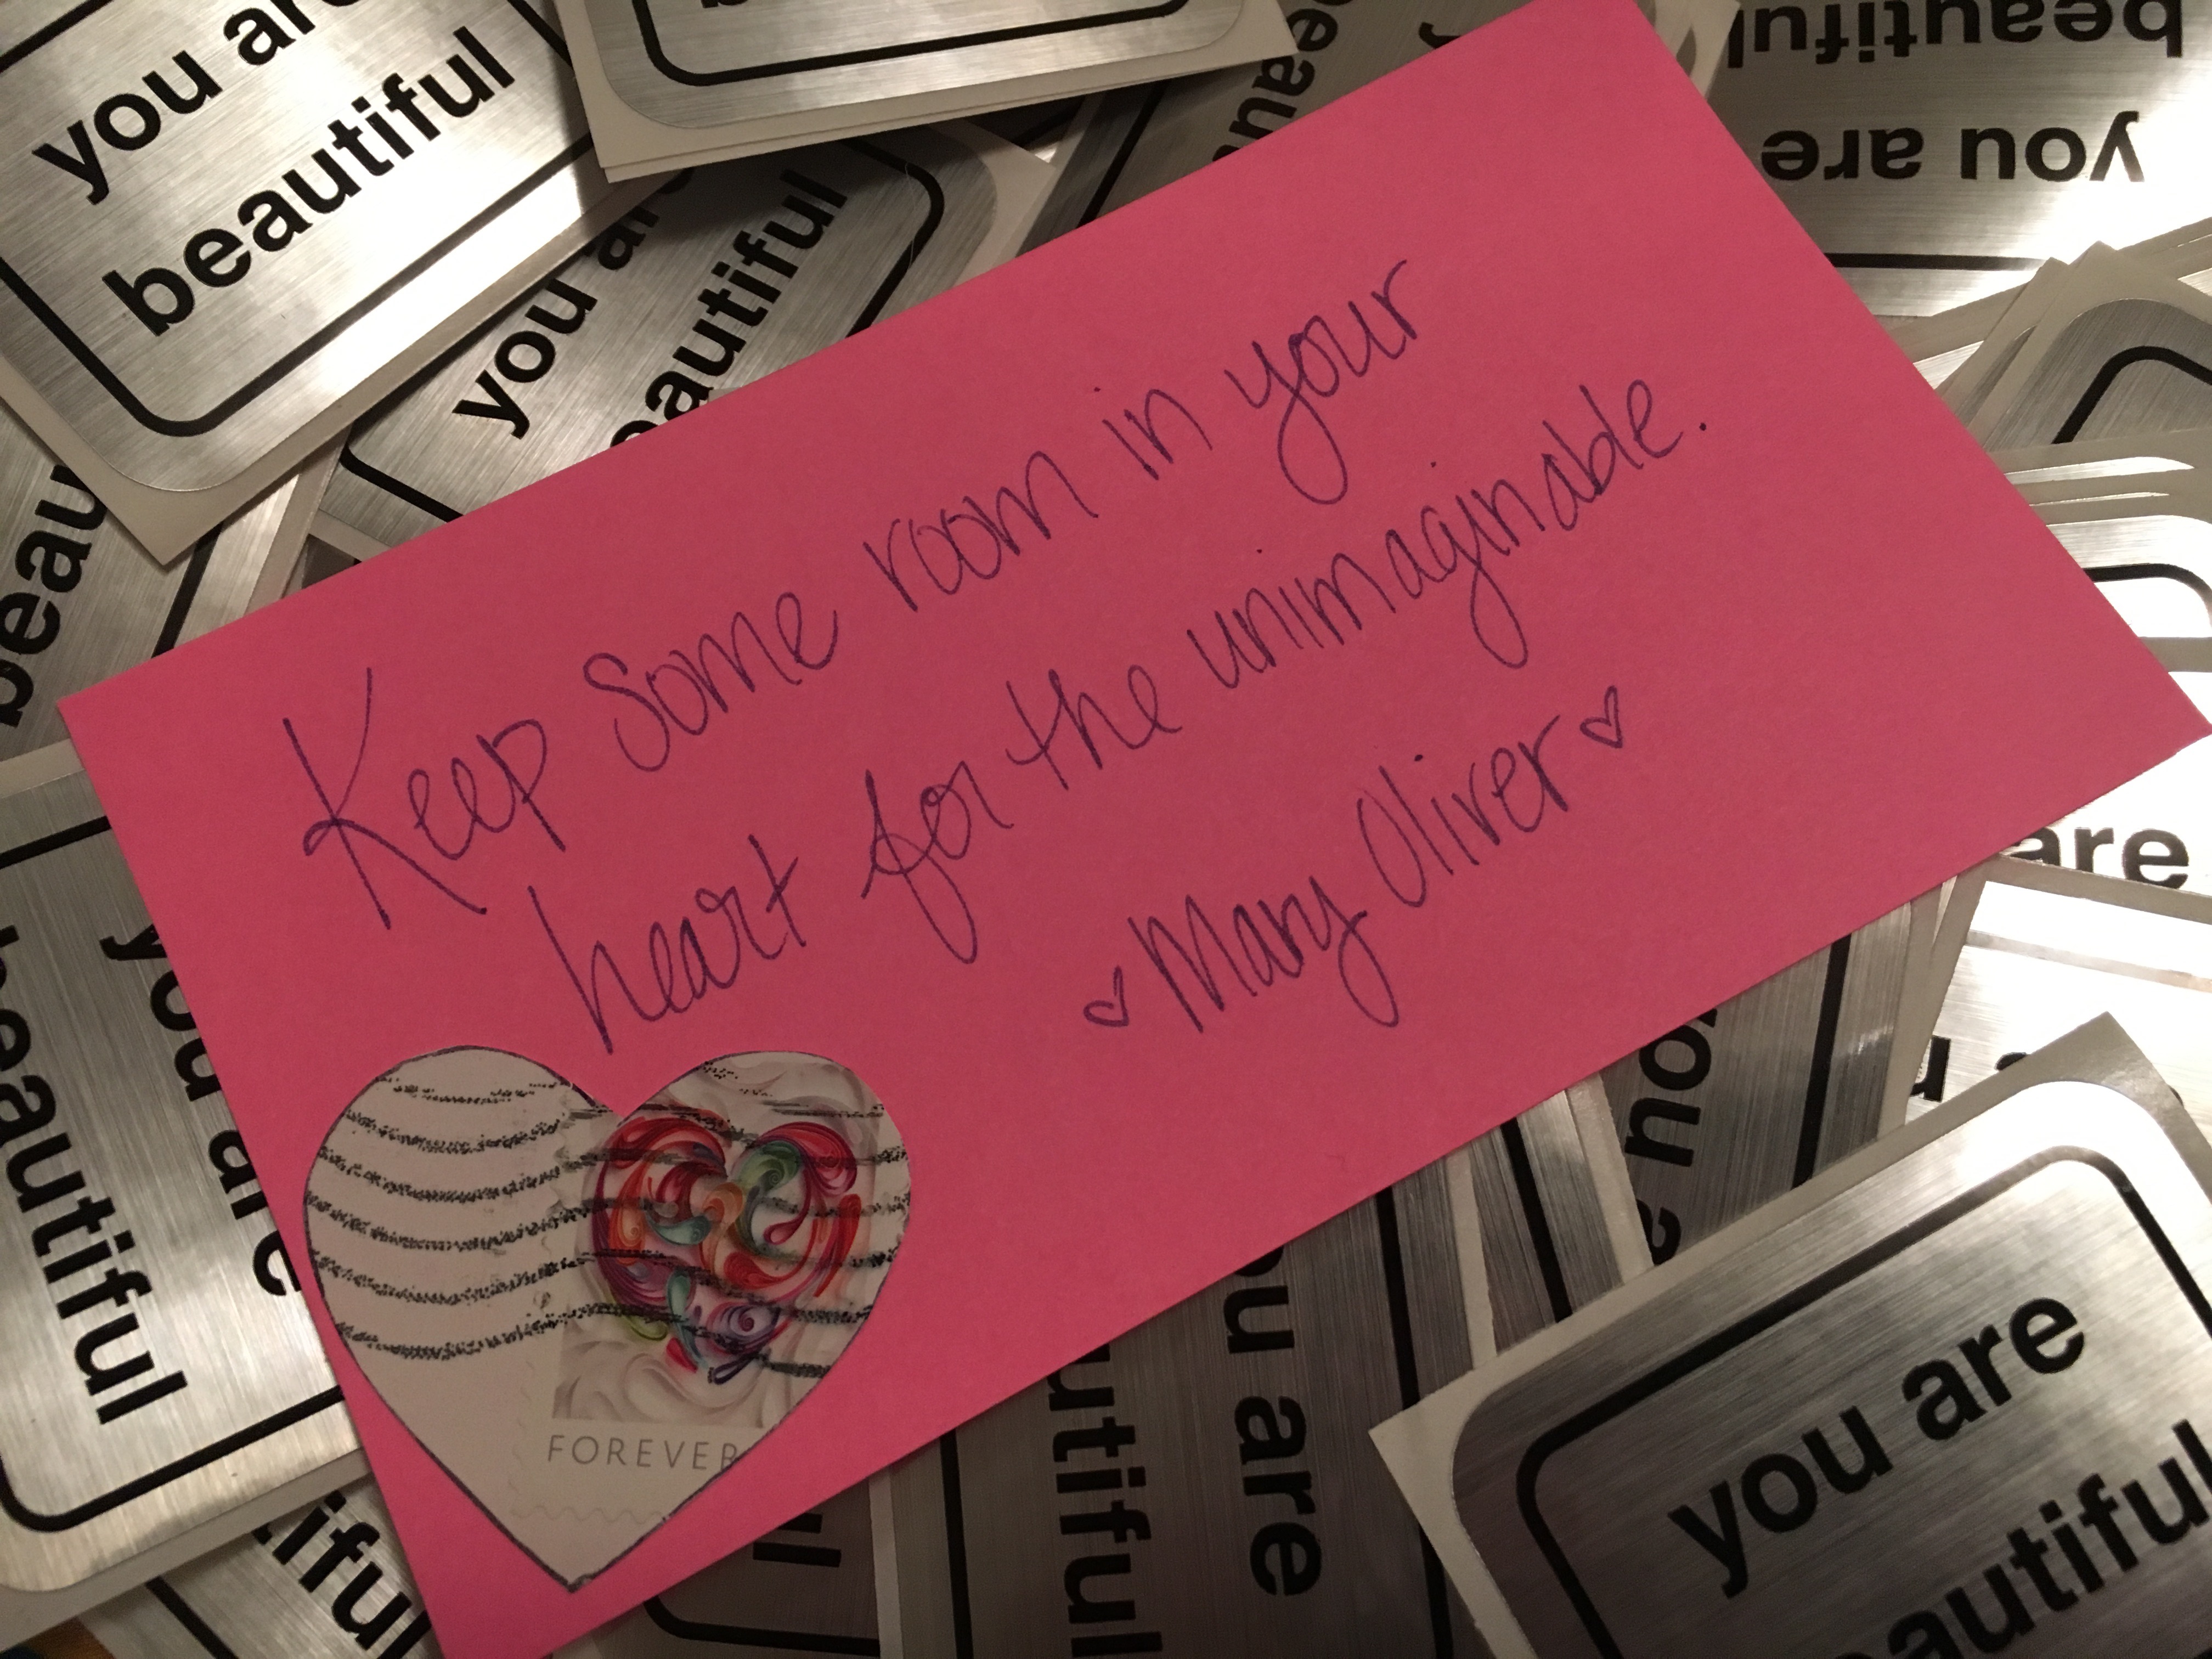 you are
beautiful
you are
beautiful
beautiful
you are
Keep some room in your
heart for the unimaginable.
Mary Oliver
FOREVER
you are
beautiful
are
you are
you are